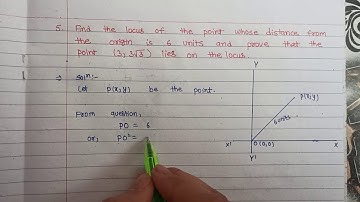 5. Find the locus of the point whose distance from
the origin is 6 units and prove that the
point (3, 3√3) lies on the locus.
→ soln:-
Let P(x,y) be the point.
From question,
PO = 6
or, PO² =
Y
P(x,y)
6 units
X'
O(0,0)
X
Y'